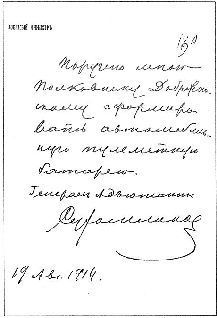 ВОЕННЫЙ МИНИСТРЪ
Поручено мною
Полковнику Добржан-
скому сформиро
вать автомобиль
ную пулеметную
батарею.
Генерал Адъютант
Сухомлинов
19 Ав. 1914.